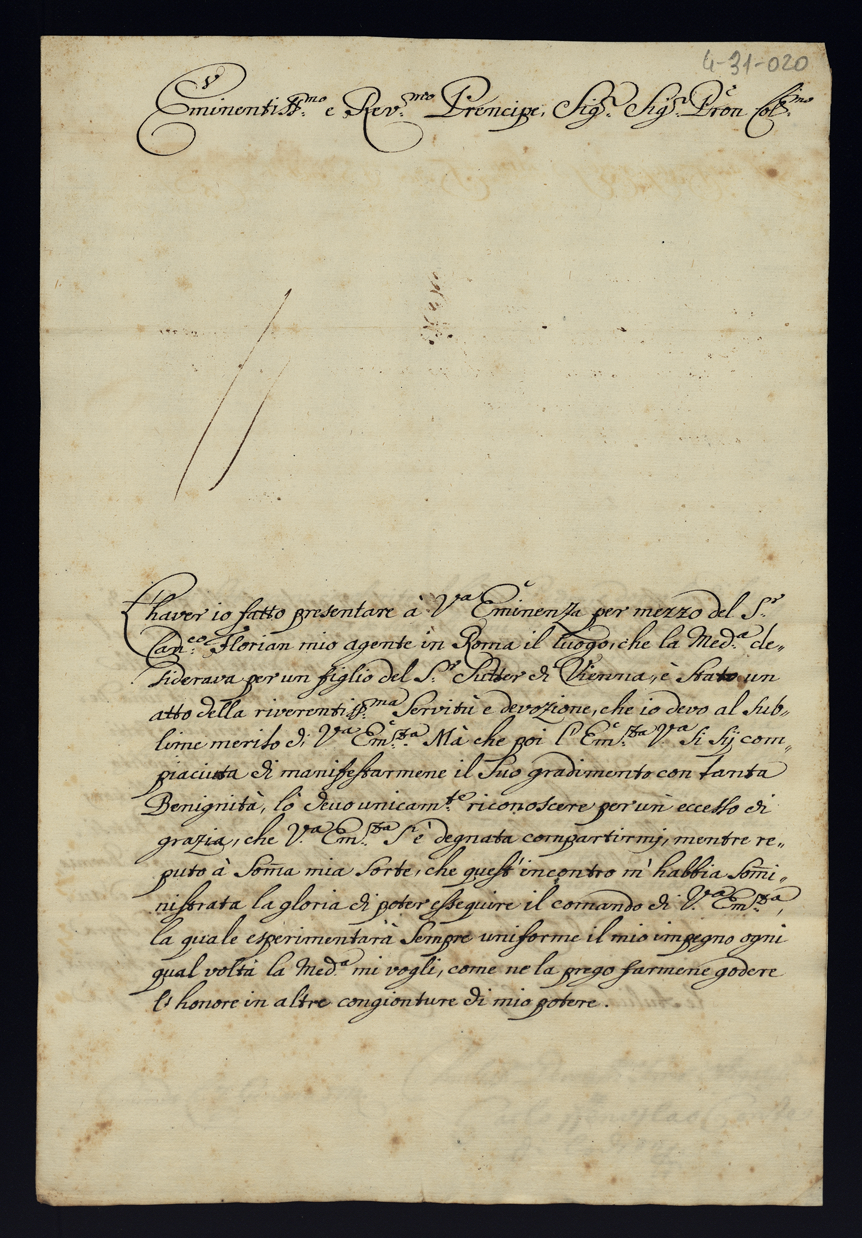 4-31-020
Eminentiss.mo e Rev.mo Prencipe, Sig.r Sig.r Pron Col.mo
L'haver io fatto presentare à V.a Eminenza per mezzo del S.r
Can.co Florian mio agente in Roma il luogo, che la Med.a de-
siderava per un figlio del S.r Sutter di Vienna, è stato un
atto della riverentiss.ma servitù e devozione, che io devo al sub-
lime merito di V.a Em.za. Mà che poi l'Em.za V.a si sij com-
piaciuta di manifestarmene il suo gradimento con tanta
Benignità, lò devo unicam.te riconoscere per un eccesso di
grazia, che V.a Em.za s'è degnata compartirmi, mentre re-
puto à som̃a mia sorte, che quest'incontro m'habbia som̃i-
nistrata la gloria di poter esseguire il comando di V.a Em.za,
la quale esperimentarà sempre uniforme il mio impegno ogni
qual volta la Med.a mi vogli, come ne la prego farmene godere
l'honore in altre congionture di mio potere.